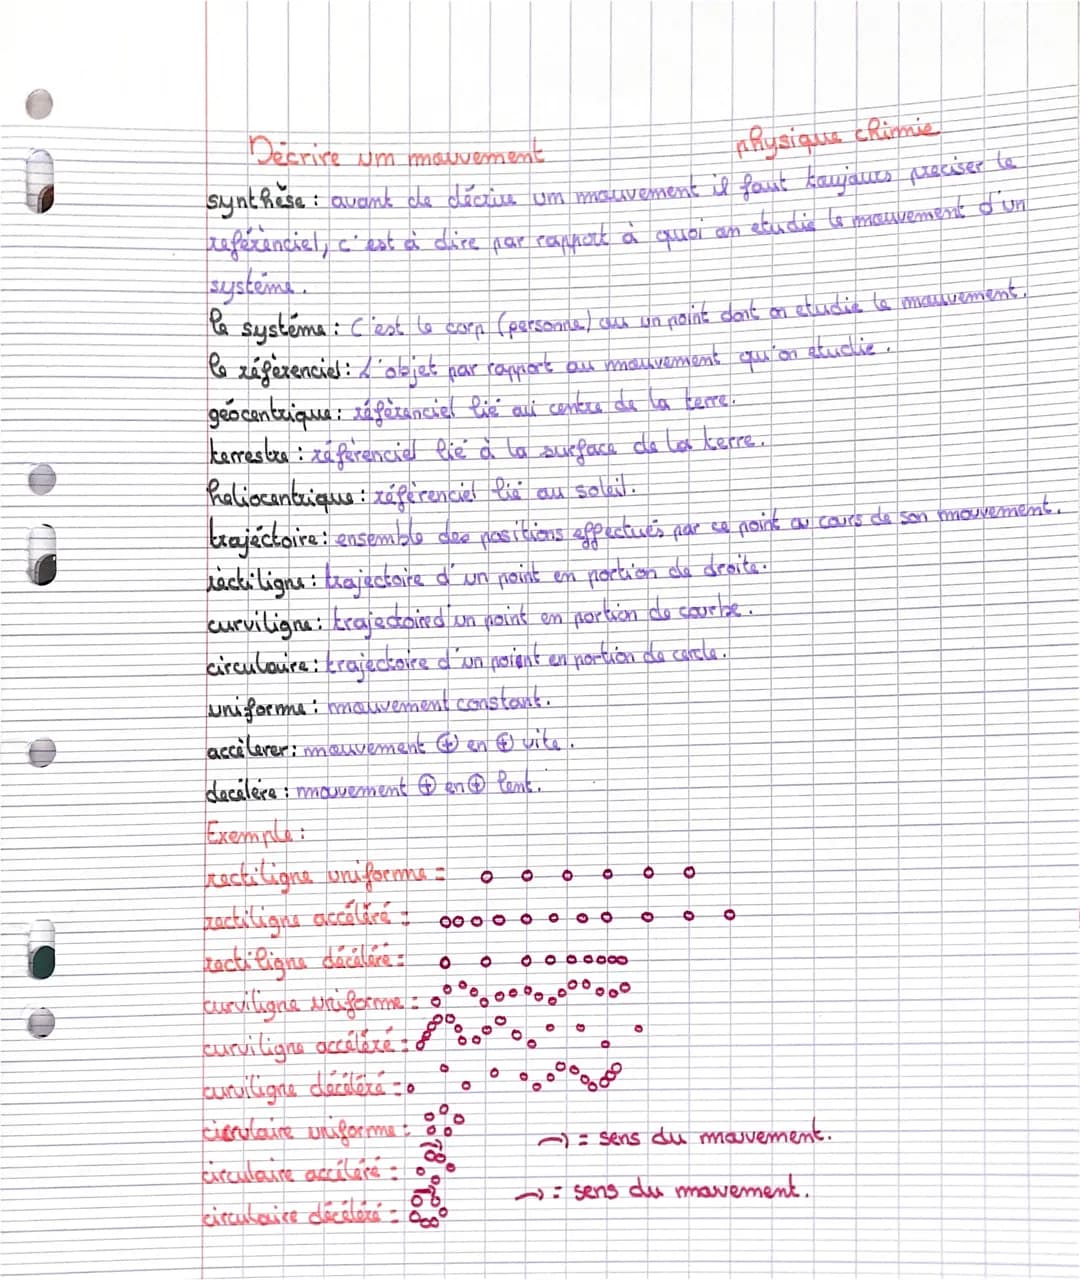 Décrire um mouvement
physique chimie
synthèse : avant de décrire um mouvement il faut toujours preciser le
référènciel, c'est à dire par rapport à quoi on etudie le mouvement d'un
systéme.
le systéme : C'est le corp (personne) ou un point dont on etudie le mouvement.
le référenciel : L'objet par rapport au mouvement qu'on etudie.
géocentrique : référenciel lié au centre de la terre.
terrestre : référenciel lié à la surface de la terre.
heliocentrique : référenciel lié au soleil.
trajéctoire : ensemble des positions effectués par ce point au cours de son mouvement.
réctiligne : trajectoire d'un point en portion de droite.
curviligne : trajectoire d'un point en portion de courbe.
circulaire : trajectoire d'un poignt en portion de cercle.
uniforme : mouvement constant.
accélerer : mouvement ⊕ en ⊕ vite.
decélére : mouvement ⊕ en ⊕ lent.
Exemple :
rectiligne uniforme =
rectiligne accéléré =
rectiligne décéléré =
curviligne uniforme =
curviligne accéléré =
curviligne décéléré =
circulaire uniforme =
→ = sens du mouvement.
circulaire accéléré =
→ = sens du mavement.
circulaire décéléré =